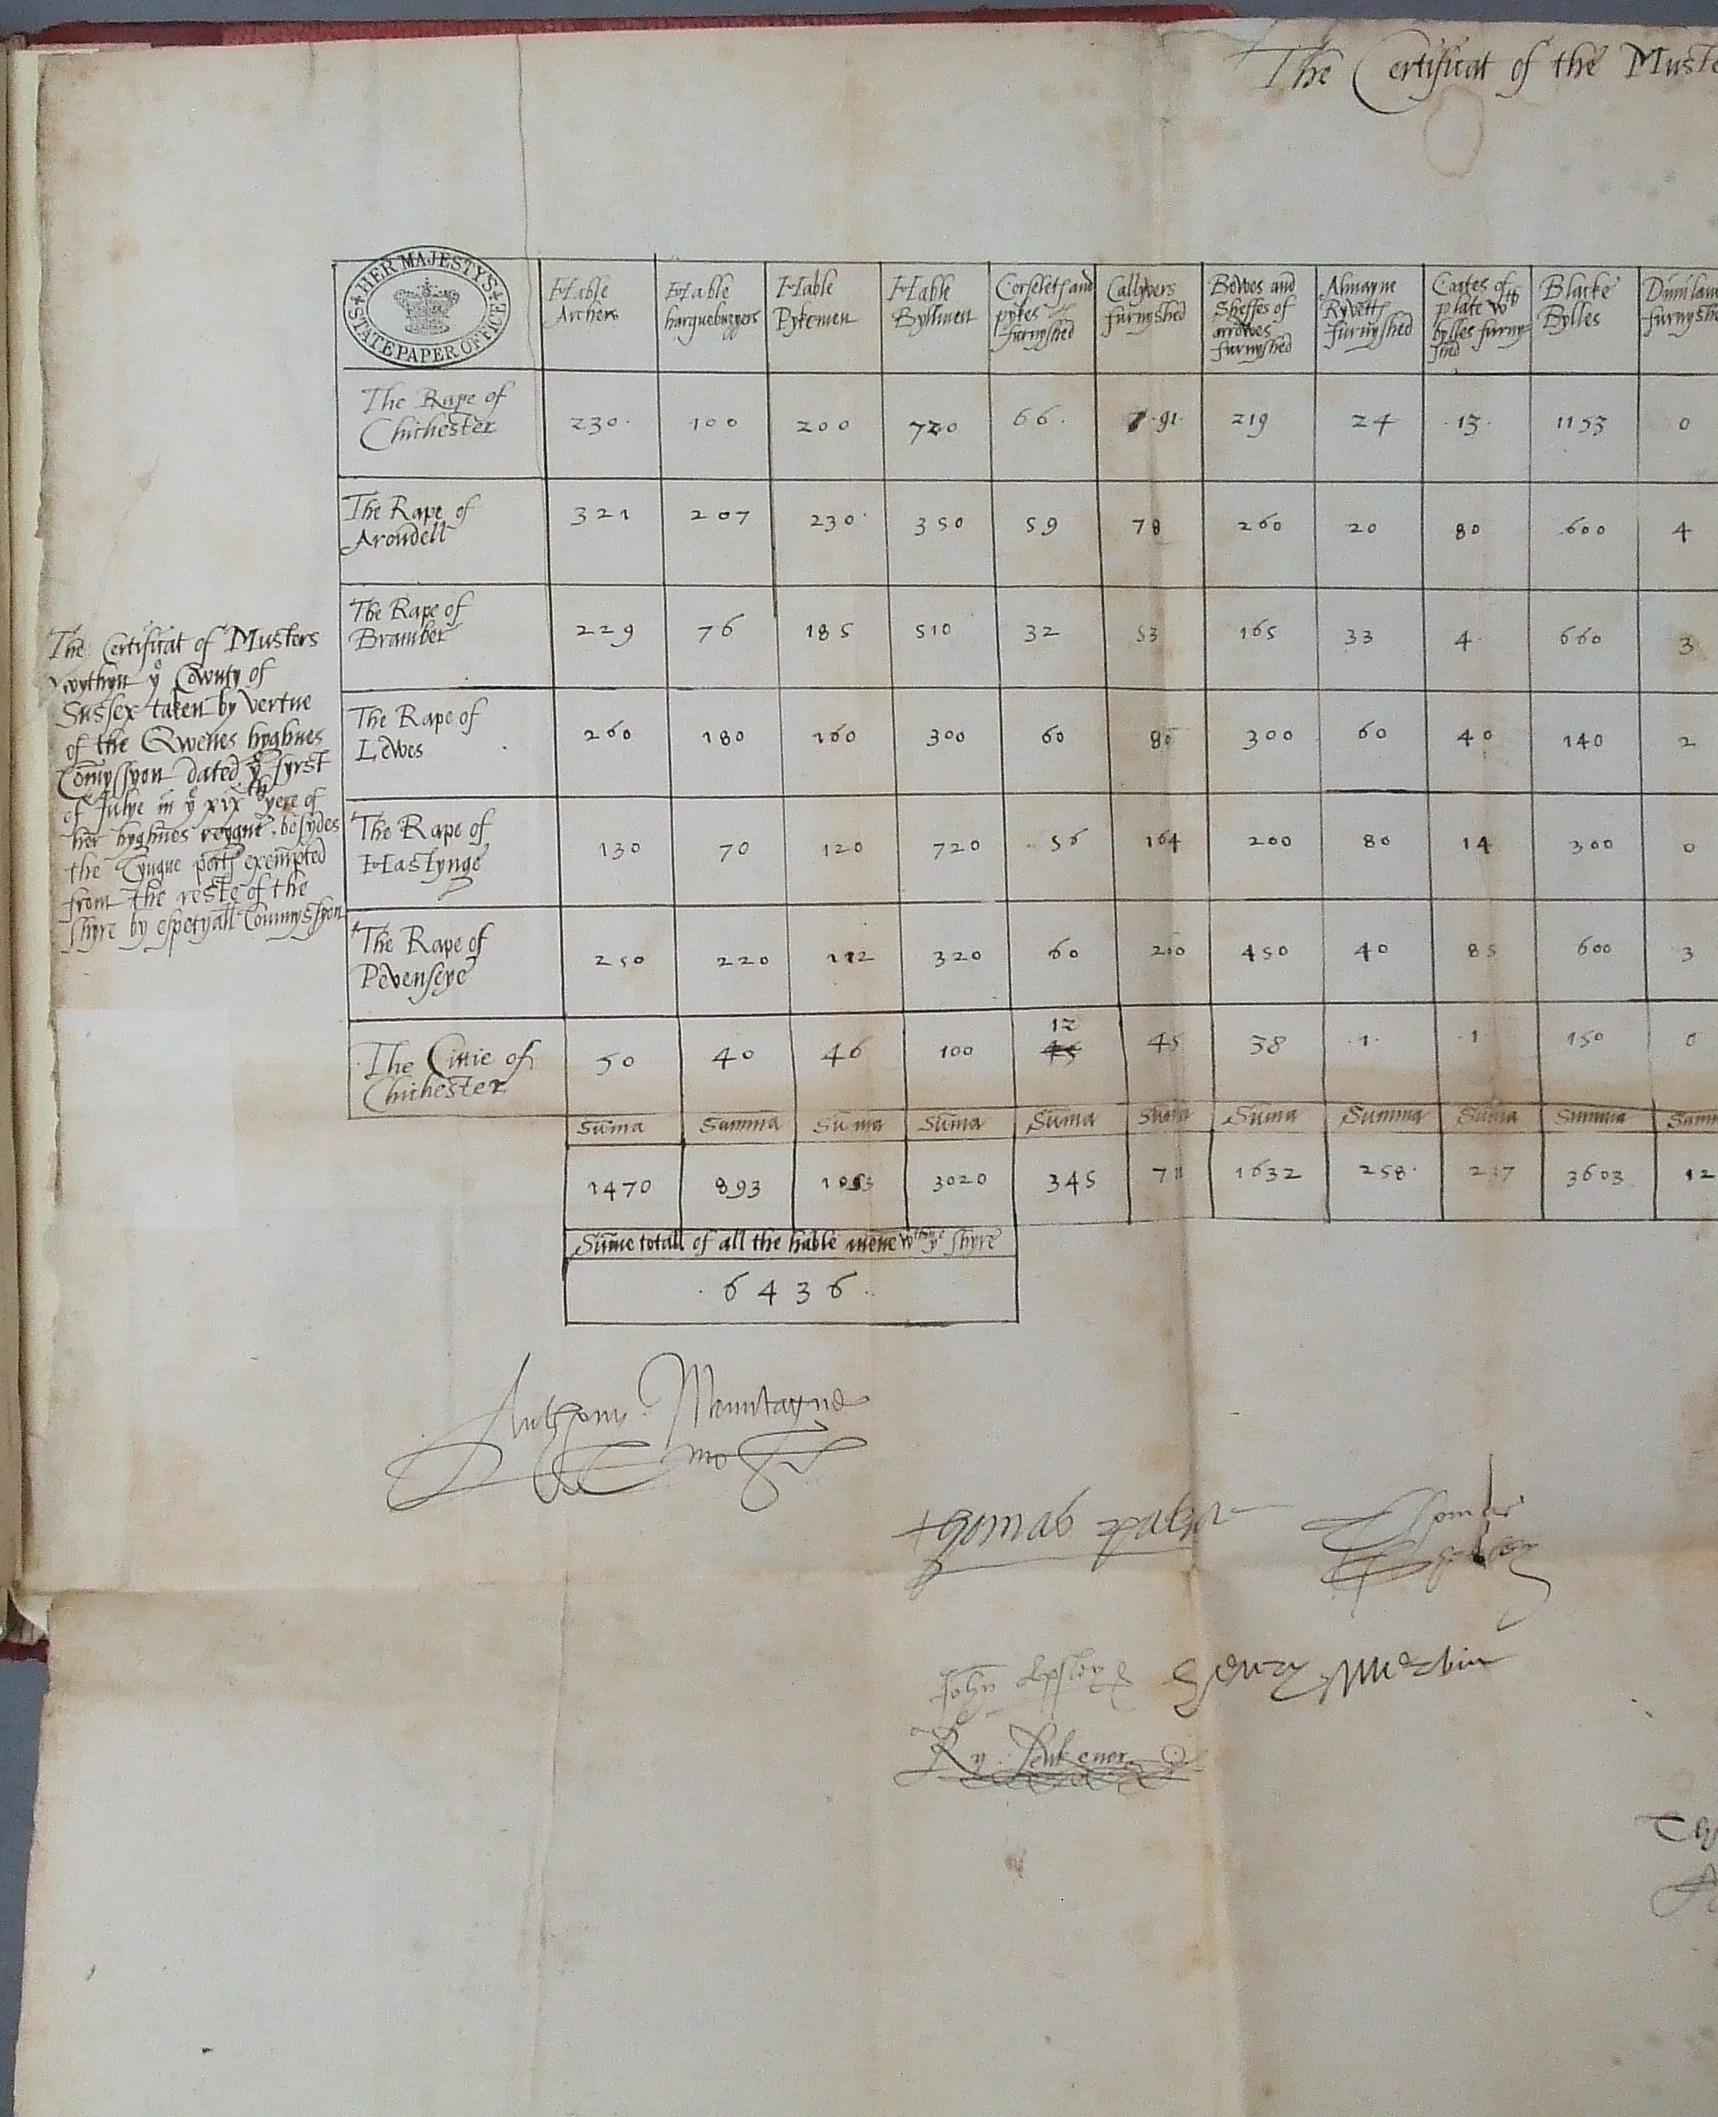 The Certificat of the Muste
HER MAJESTY'S
STATE PAPER OFFICE
Hable Archers
Hable hargucbuzyers
Hable Pykemen
Hable Byllmen
Corseletts and pykes furnyshed
Callyvers furnyshed
Bowes and Sheffes of arrowes furnyshed
Almayne Ryvetts furnyshed
Coates of plate wth bylles furnyshed
Blacke Bylles
furnyshe
The Rape of Chichester 230 100 200 720 66 91 219 24 13 1153 0
The Rape of Arondell 321 207 230 350 59 78 260 20 80 600 4
The Rape of Bramber 229 76 185 510 32 53 165 33 4 660 3
The Rape of Lewes 260 180 160 300 60 80 300 60 40 140 2
The Rape of Hastynge 130 70 120 720 56 164 200 80 14 300 0
The Rape of Pevenseye 250 220 112 320 60 200 450 40 85 600 3
12
The Cittie of Chichester 50 40 46 100 45 45 38 1 1 150 0
Suma Summa Suma Suma Suma Suma Suma Summa Suma Summa Summ
1470 893 1053 3020 345 1632 258 237 3603 12
Sume totall of all the hable mene wthyn ye shyre
6436
The Certificat of Musters
wythyn ye Cownty of
Sussex taken by vertue
of the Qwenes hyghnes
Comyssyon dated ye fyrst
of Julye in ye xixth yere of
her hyghnes reygne, besydes
the Cynque ports exempted
from the reste of the
shyre by espetyall Commyssyon
Anthony Mountague
Thomas Palmer
Thomas
John
Ry: Leukenor